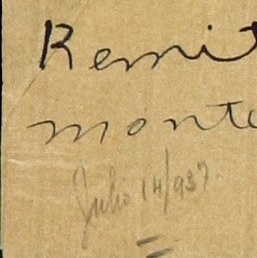 Remit
monte
Julio 14/937.